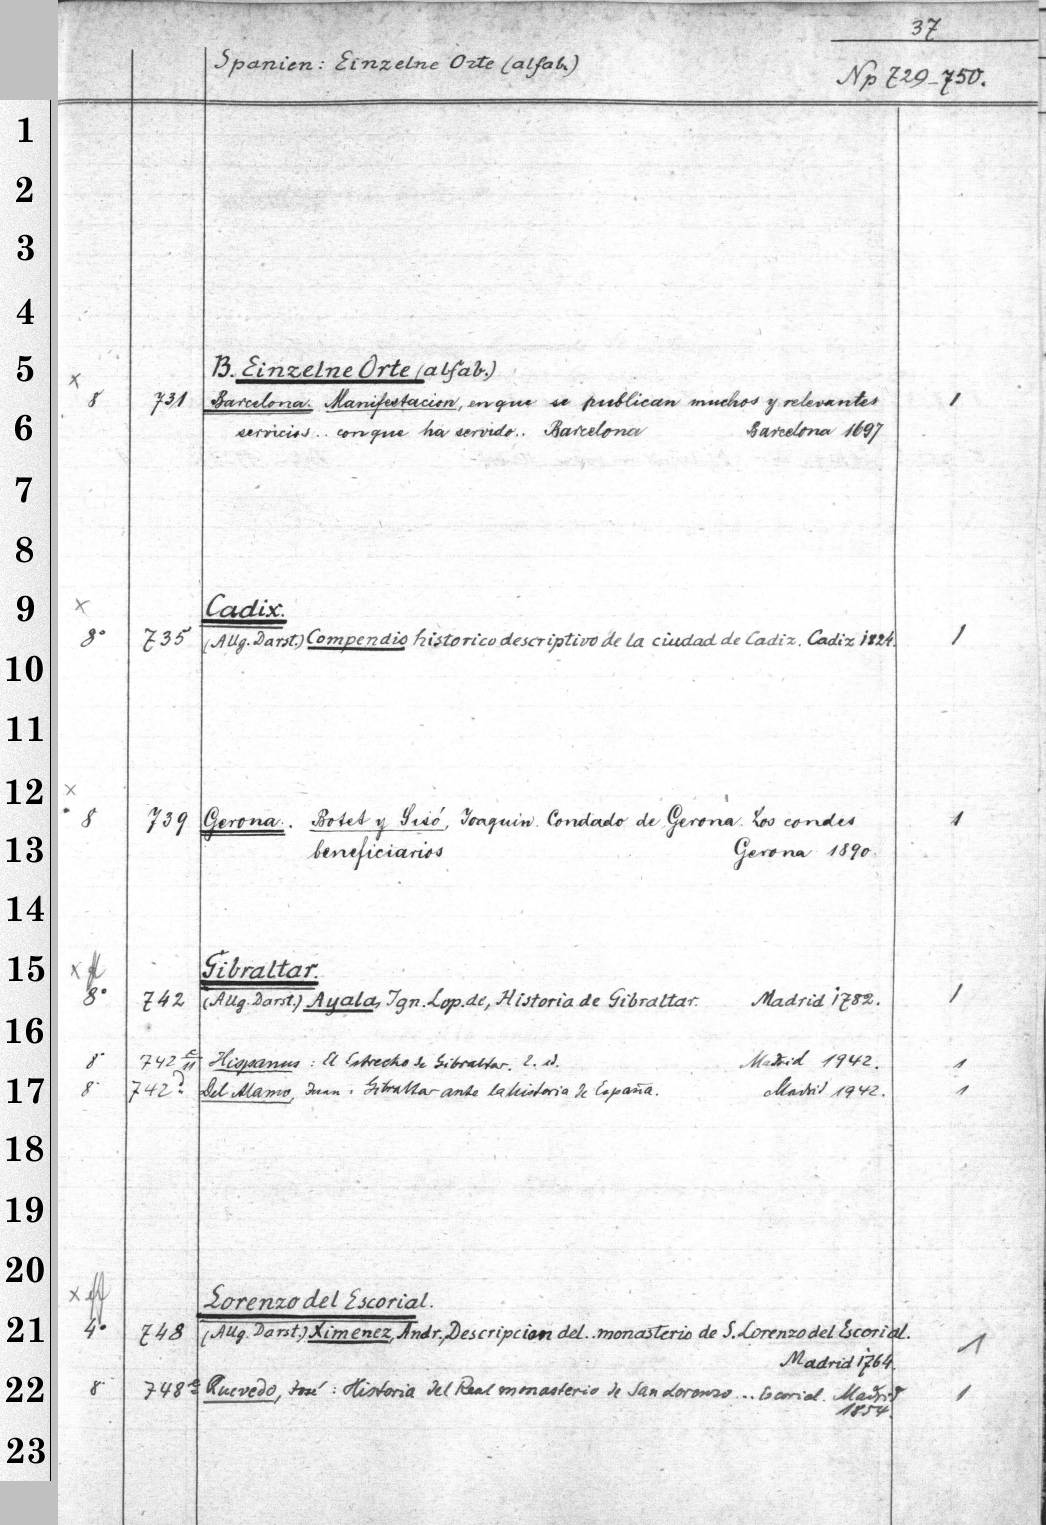 37
Spanien: Einzelne Orte (alfab.)
Np 729-750.
1
2
3
4
5
B. Einzelne Orte (alfab.)
x
8° 731 Barcelona. Manifestacion, en que se publican muchos y relevantes 1
6
servicios.. con que ha servido.. Barcelona Barcelona 1697
7
8
9
x Cadix.
8° 735 (Allg. Darst.) Compendio historico descriptivo de la ciudad de Cadiz. Cadiz 1824. 1
10
11
12
x
8 739 Gerona. Botet y Sisó, Joaquin. Condado de Gerona. Los condes 1
13
beneficiarios Gerona 1890.
14
15
x Gibraltar.
8° 742 (Allg. Darst.) Ayala, Ign. Lop. de, Historia de Gibraltar. Madrid 1782. 1
16
8° 742 Hispanus: El Estrecho de Gibraltar. 2. ed. Madrid 1942. 1
17
8° 742 Del Alamo, Juan: Gibraltar ante la historia de España. Madrid 1942. 1
18
19
20
x Lorenzo del Escorial.
21
4° 748 (Allg. Darst.) Ximenez, Andr., Descripcion del.. monasterio de S. Lorenzo del Escorial. 1
Madrid 1764.
22
8° 748 Quevedo, José: Historia del Real monasterio de San Lorenzo... Escorial. Madrid 1
1854.
23